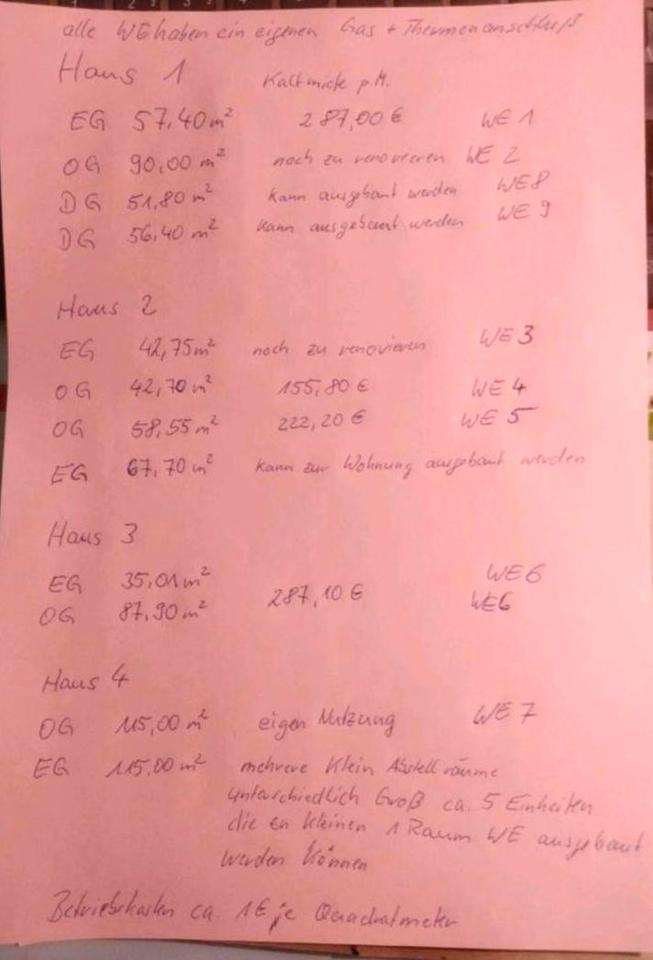 alle WE haben ein eigenen Gas + Thermenanschluß
Haus 1 Kaltmiete p.M.
EG 57,40 m² 287,00 € WE 1
OG 90,00 m² noch zu renovieren WE 2
DG 51,80 m² kann ausgebaut werden WE 8
DG 56,40 m² kann ausgebaut werden WE 9
Haus 2
EG 42,75 m² noch zu renovieren WE 3
OG 42,70 m² 155,80 € WE 4
OG 58,55 m² 222,20 € WE 5
EG 67,70 m² kann zur Wohnung ausgebaut werden
Haus 3
EG 35,01 m² WE 6
OG 87,90 m² 287,10 € WE6
Haus 4
OG 115,00 m² eigen Nutzung WE 7
EG 115,00 m² mehrere Klein Abstellräume
unterschiedlich Groß ca. 5 Einheiten
die en kleinen 1 Raum WE ausgebaut
werden können
Betriebskosten ca. 1€ je Quadratmeter